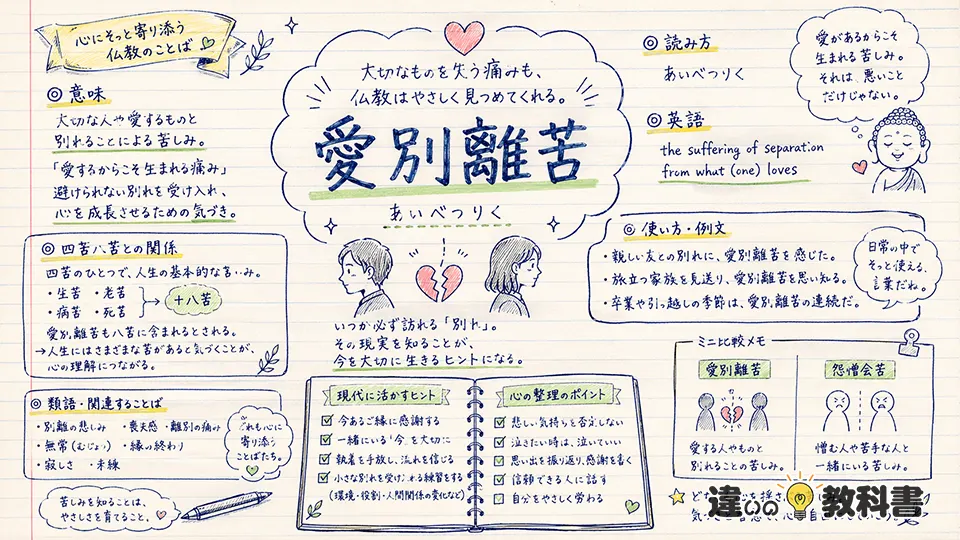 心にそっと寄り添う
仏教のことば
◎ 意味
大切な人や愛するものと
別れることによる苦しみ。
「愛するからこそ生まれる痛み」
避けられない別れを受け入れ、
心を成長させるための気づき。
大切なものを失う痛みも、
仏教はやさしく見つめてくれる。
愛別離苦
あいべつりく
◎ 読み方
あいべつりく
◎ 英語
the suffering of separation
from whut (one) loves
愛があるからこそ
生まれる苦しみ。
それは、悪いこと
だけじゃない。
◎ 四苦八苦との関係
四苦のひとつで、人生の基本的な
・生苦 ・老苦
・病苦 ・死苦
十八苦
愛別離苦も八苦に含まれるとされる。
→人生にはさまざまな苦があると気づくことが、
心の理解につながる。
いつか必ず訪れる「別れ」。
その現実を知ることが、
今を大切に生きるヒントになる。
◎ 使い方・例文
・親しい友との別れに、愛別離苦を感じた。
・旅立つ家族を見送り、愛別離苦を思い知る。
・卒業や引っ越しの季節は、愛別離苦の連続だ。
日常の中で
そっと使える、
言葉だね。
◎ 類語・関連することば
・別離の悲しみ ・喪失感 ・離別の痛み
・無常(むじょう) ・縁の終わり
・寂しさ ・未練
これも心に
寄り添う
ことばたち。
苦しみを知ることは、
やさしさを育てること。
現代に活かすヒント
今あるご縁に感謝する
一緒にいる「今」を大切に
執着を手放し、流れを信じる
小さな別れを受け入れる練習をする
(環境・役割・人間関係の変化など)
心の整理のポイント
悲しい気持ちを否定しない
泣きたい時は、泣いていい
思い出を振り返り、感謝を書く
信頼できる人に話す
自分をやさしく労わる
ミニ比較メモ
愛別離苦
怨憎会苦
愛する人やものと
別れることの苦しみ。
憎む人や苦手な人と
一緒にいる苦しみ。
違いの教科書